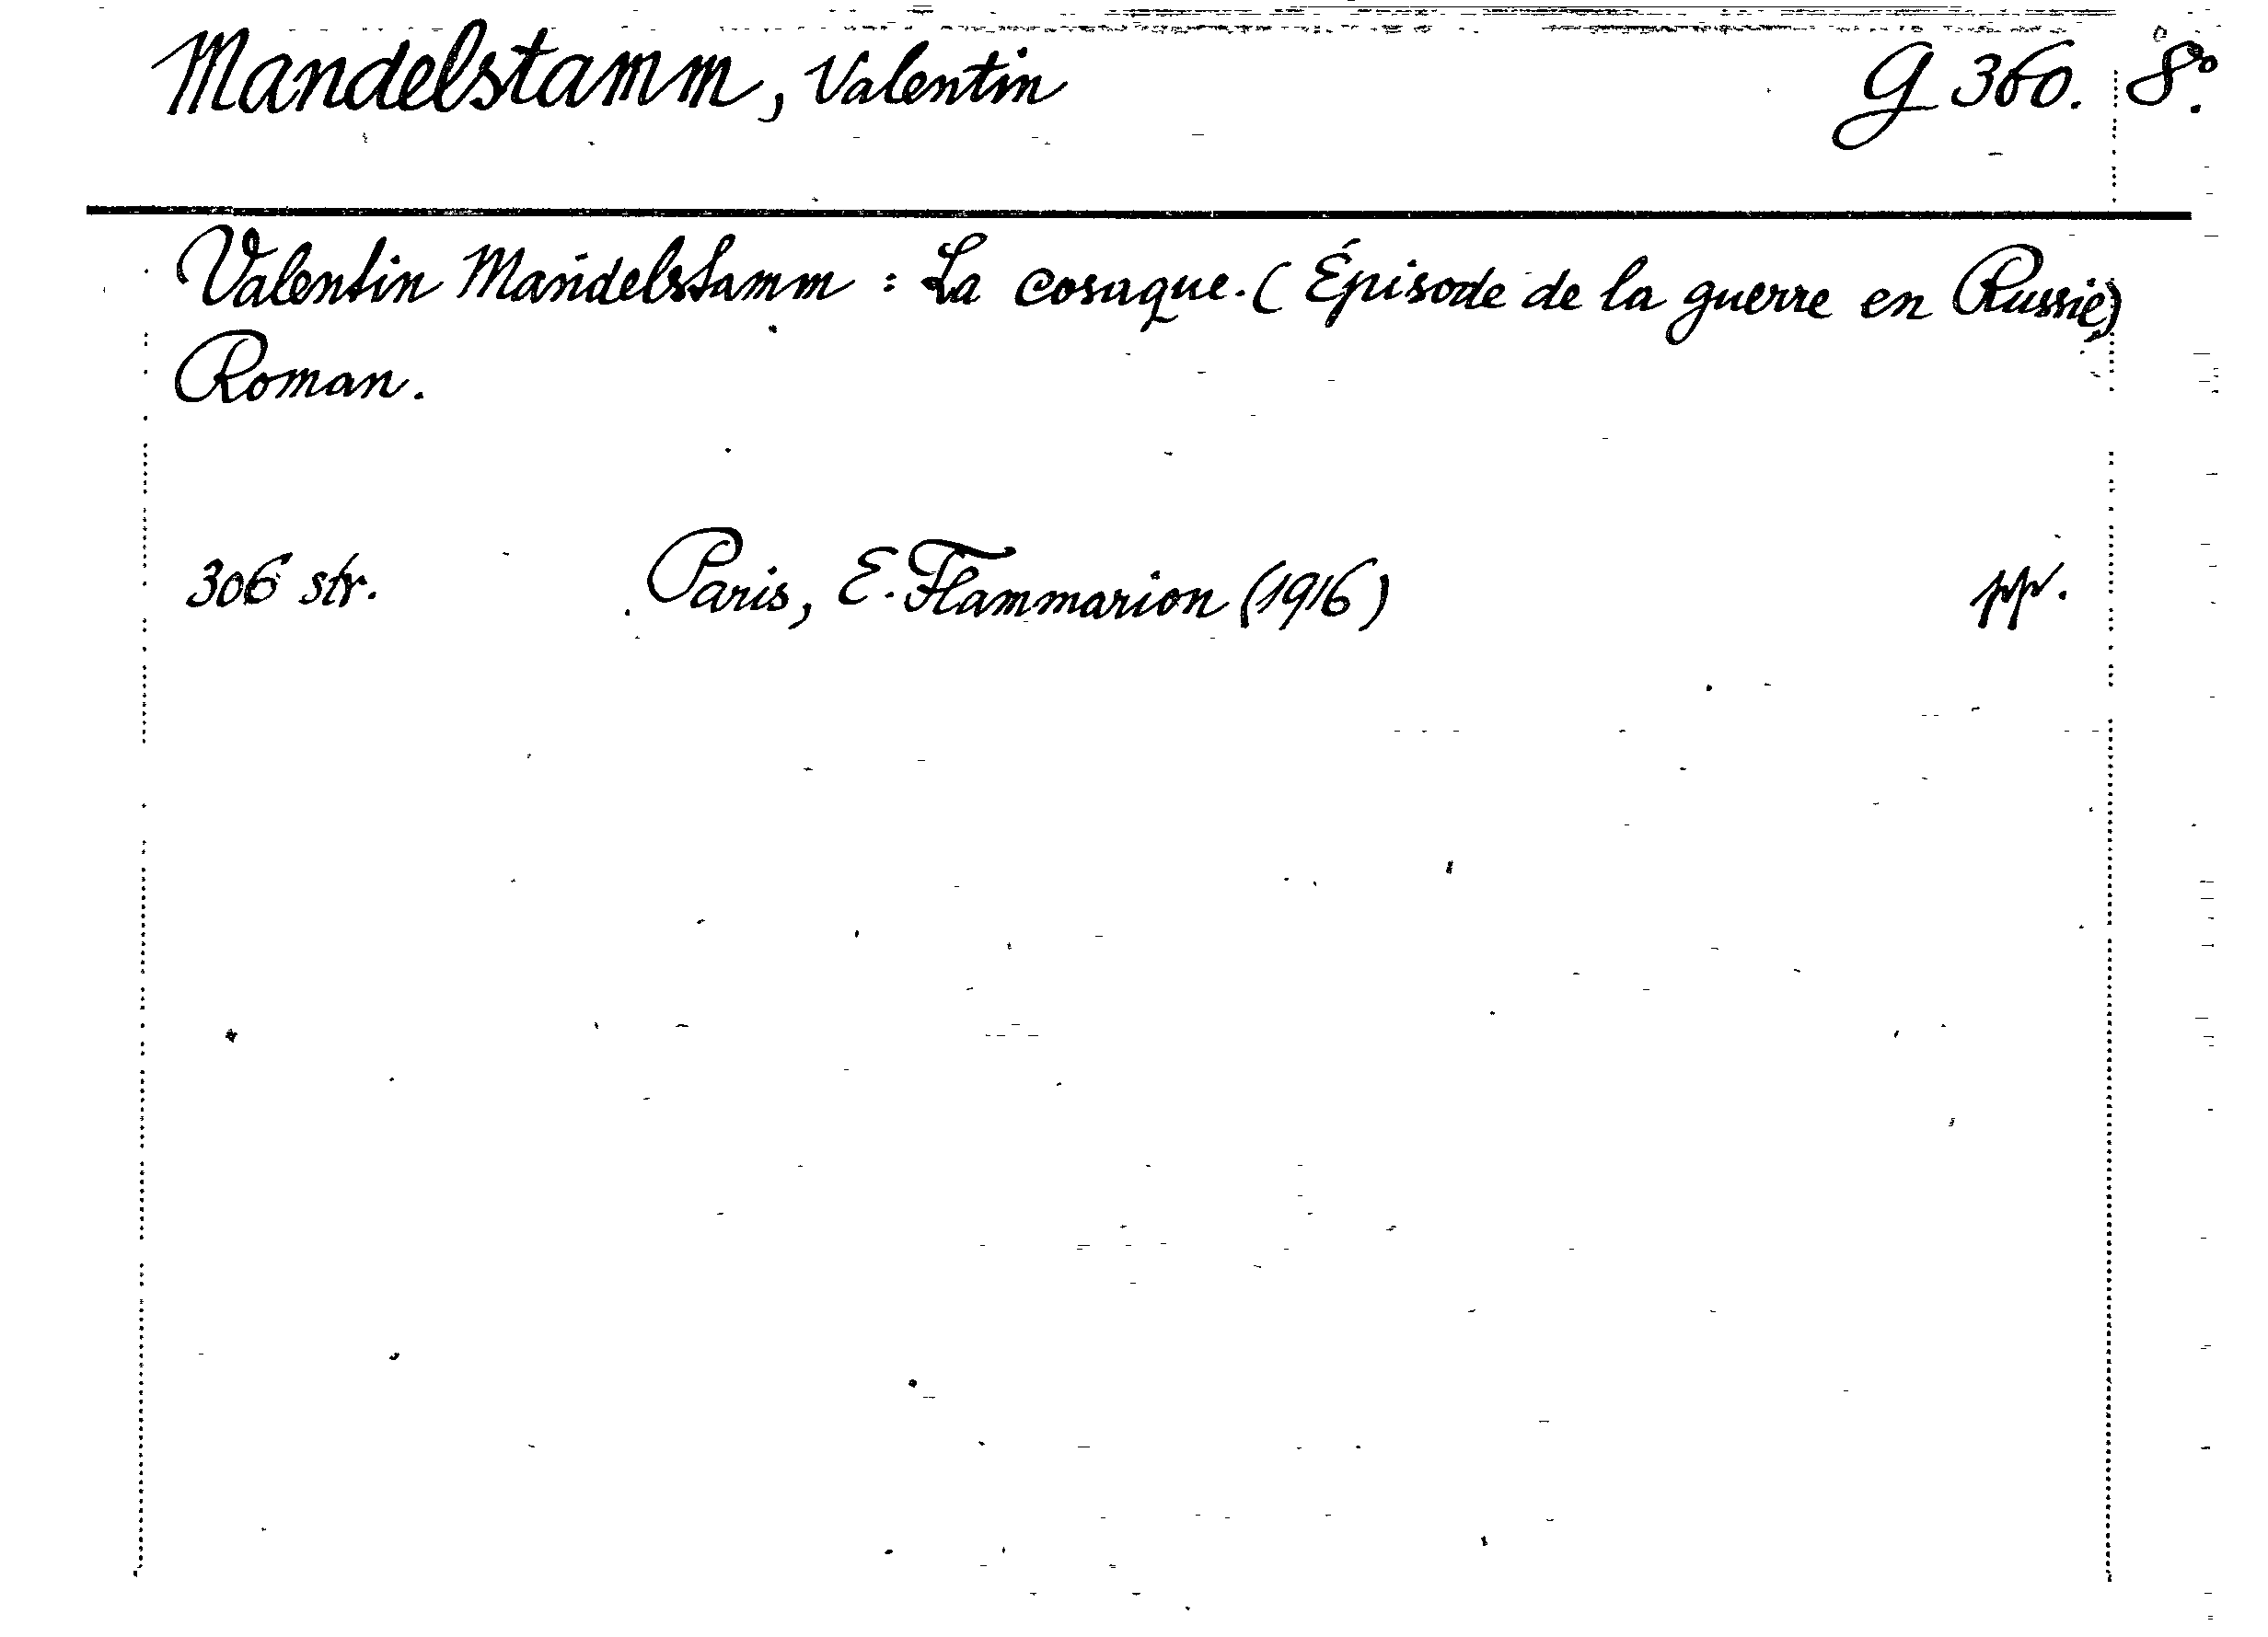 Mandelstamm, Valentin G 360. 8°.
Valentin Mandelstamm : La cosaque. (Épisode de la guerre en Russie)
Roman.
306 str. Paris, E. Flammarion (1916) pp.